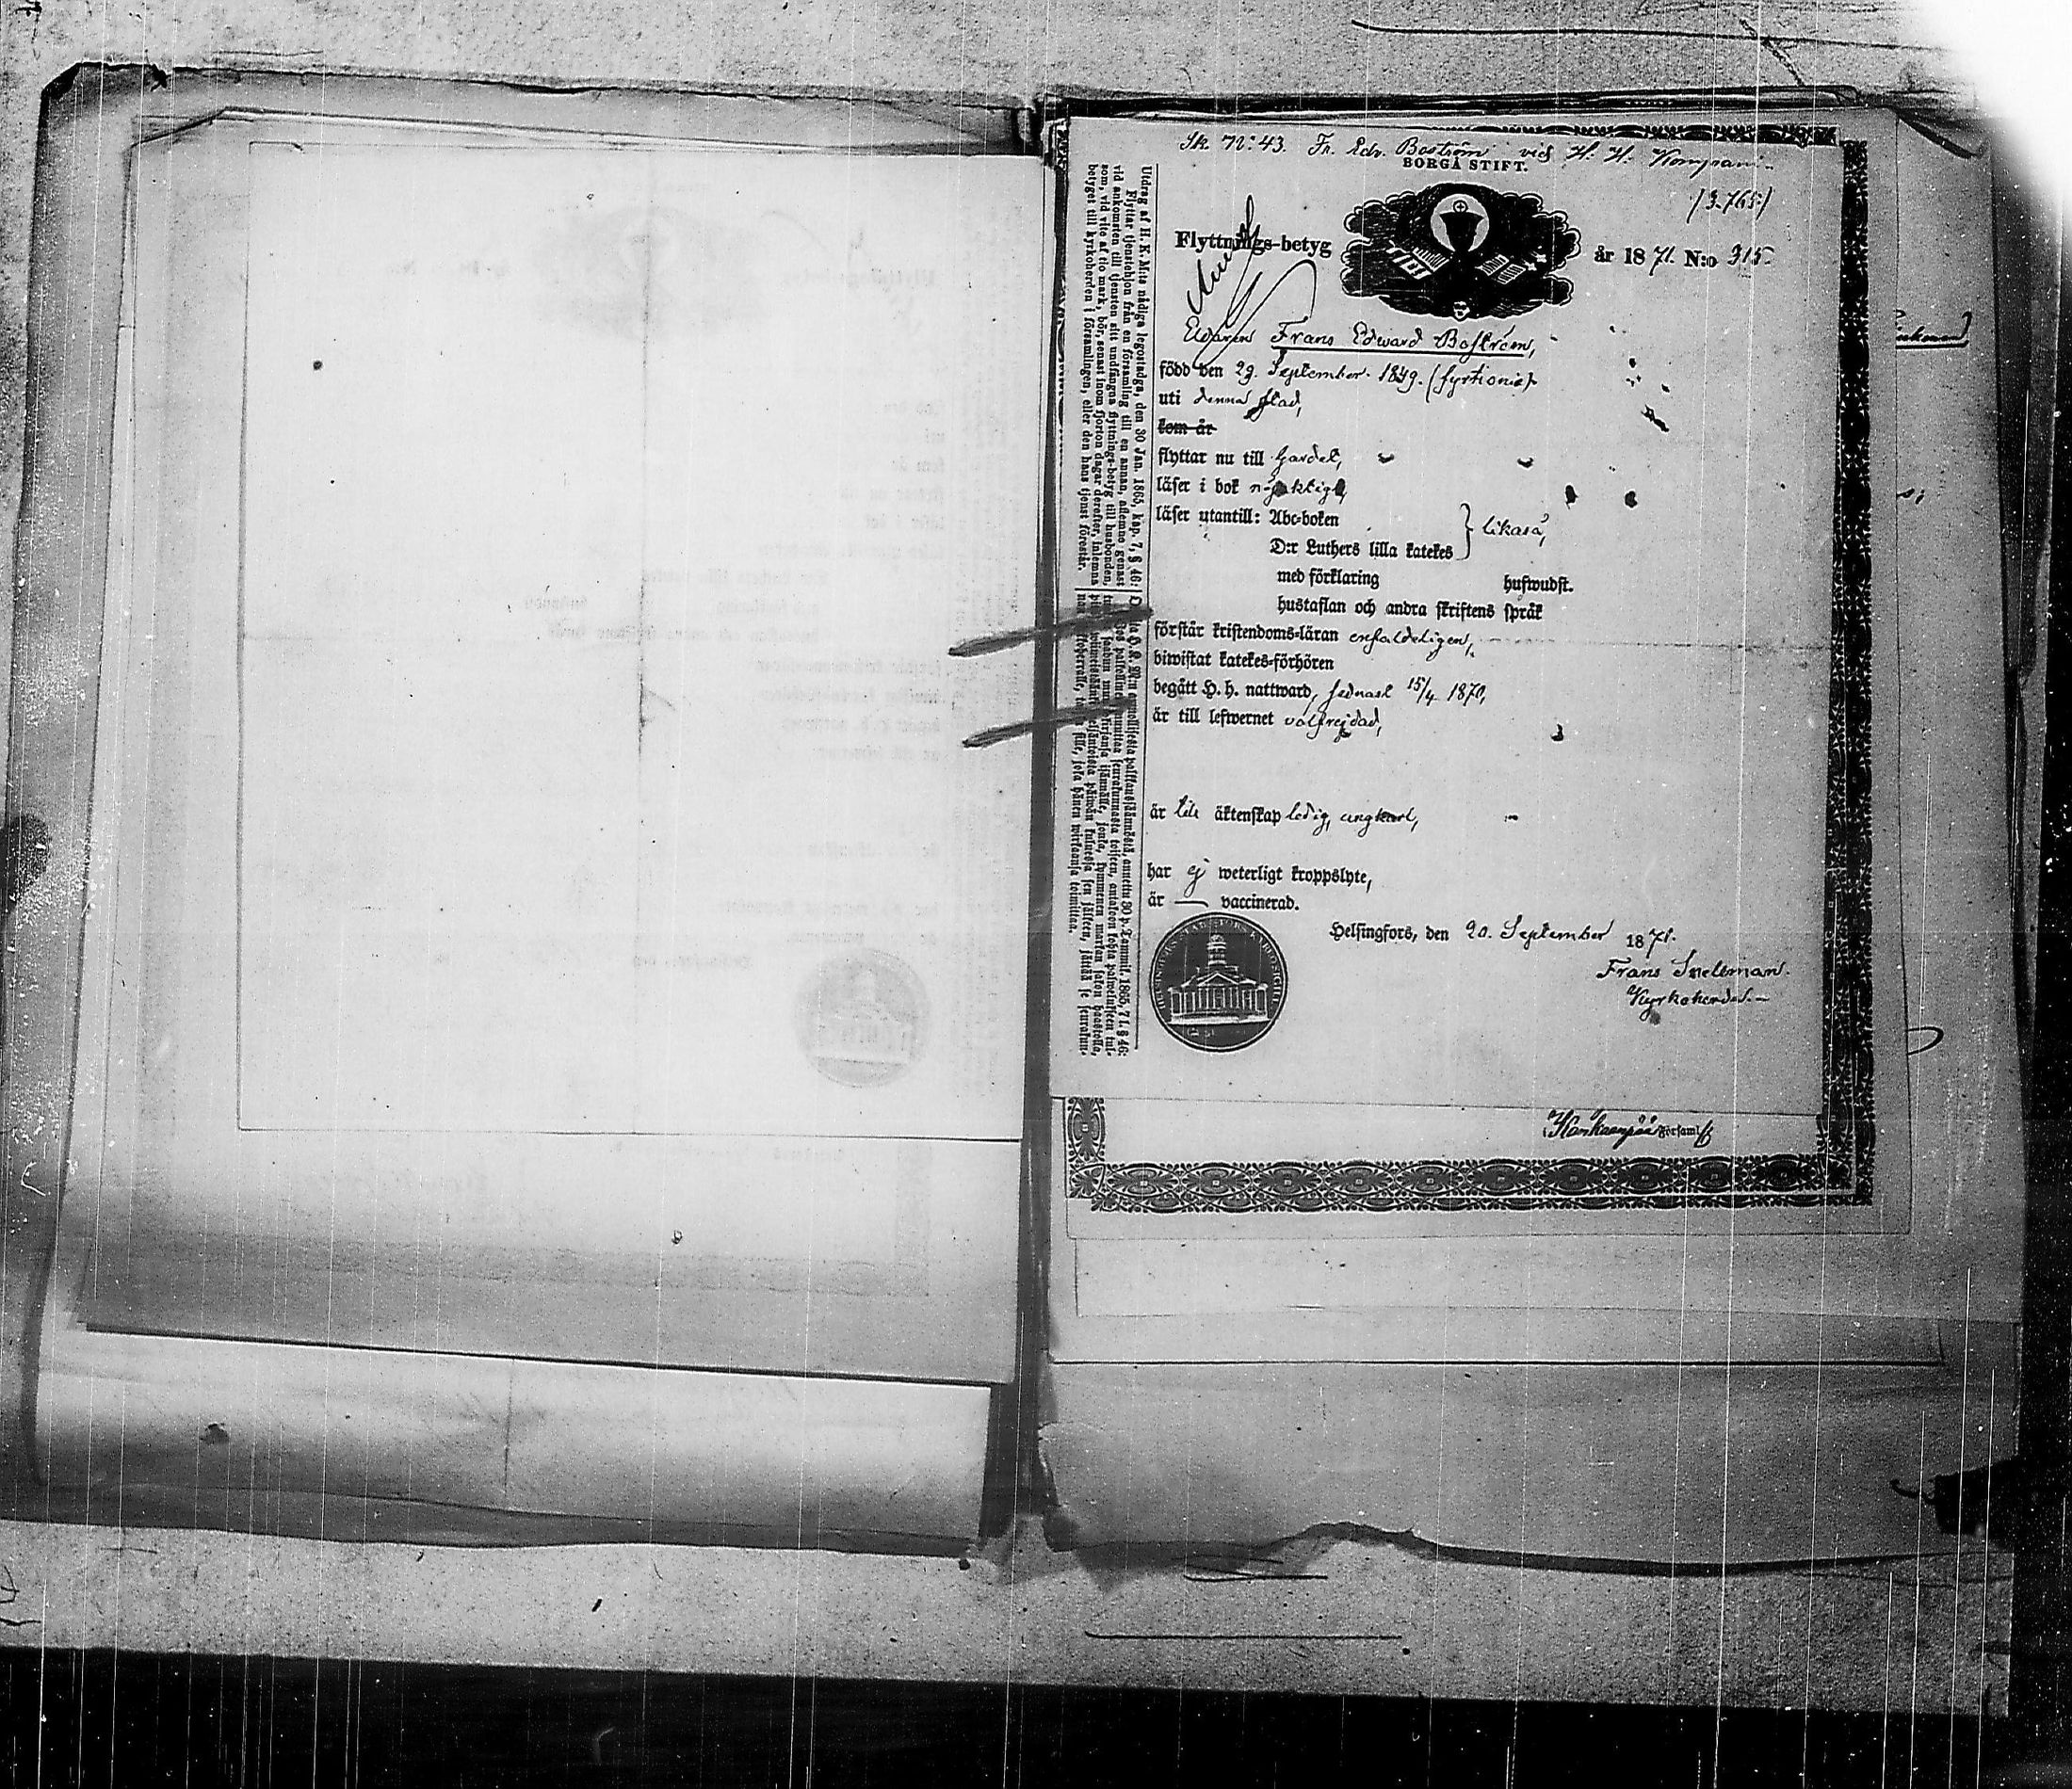 Sk N:43. Fr. Edv. Boström vid H. H. Kompani
BORGÅ STIFT.
/3.765/
Flyttnings-betyg år 1871. N:o 315.
Frans Edward Boström,
född den 29. September 1849. (fyrtionie)
uti denna stad,
kom år
flyttar nu till Gardet,
läser i bok nöjaktigt,
läser utantill: Abc-boken
D:r Luthers lilla katekes } likaså,
med förklaring huswudst.
hustaflan och andra skriftens språk
förstår kristendoms-läran enfaldeligen,
biwistat katekes-förhören
begått H. H. nattward, sednast 15/4 1870,
är till lefwernet välfrejdad,
är till äktenskap ledig, ungkarl,
har ej weterligt kroppslyte,
är — vaccinerad.
Helsingfors, den 20. September 1871.
Frans Snellman.
Kyrkoherde.
Kankaanpää församl
Utdrag af H. K. M:ts nådiga legostadga, den 30 Jan. 1865, kap. 7, § 46:
Flyttar tjenstehjon från en församling till en annan, aflemne genast
vid ankomsten till tjensten sitt undfångna flyttnings-betyg till husbonden,
som, vid vite af tio mark, bör, senast inom fjorton dagar derefter, inlemna
betyget till kyrkoherden i församlingen, eller den hans tjenst förestår.